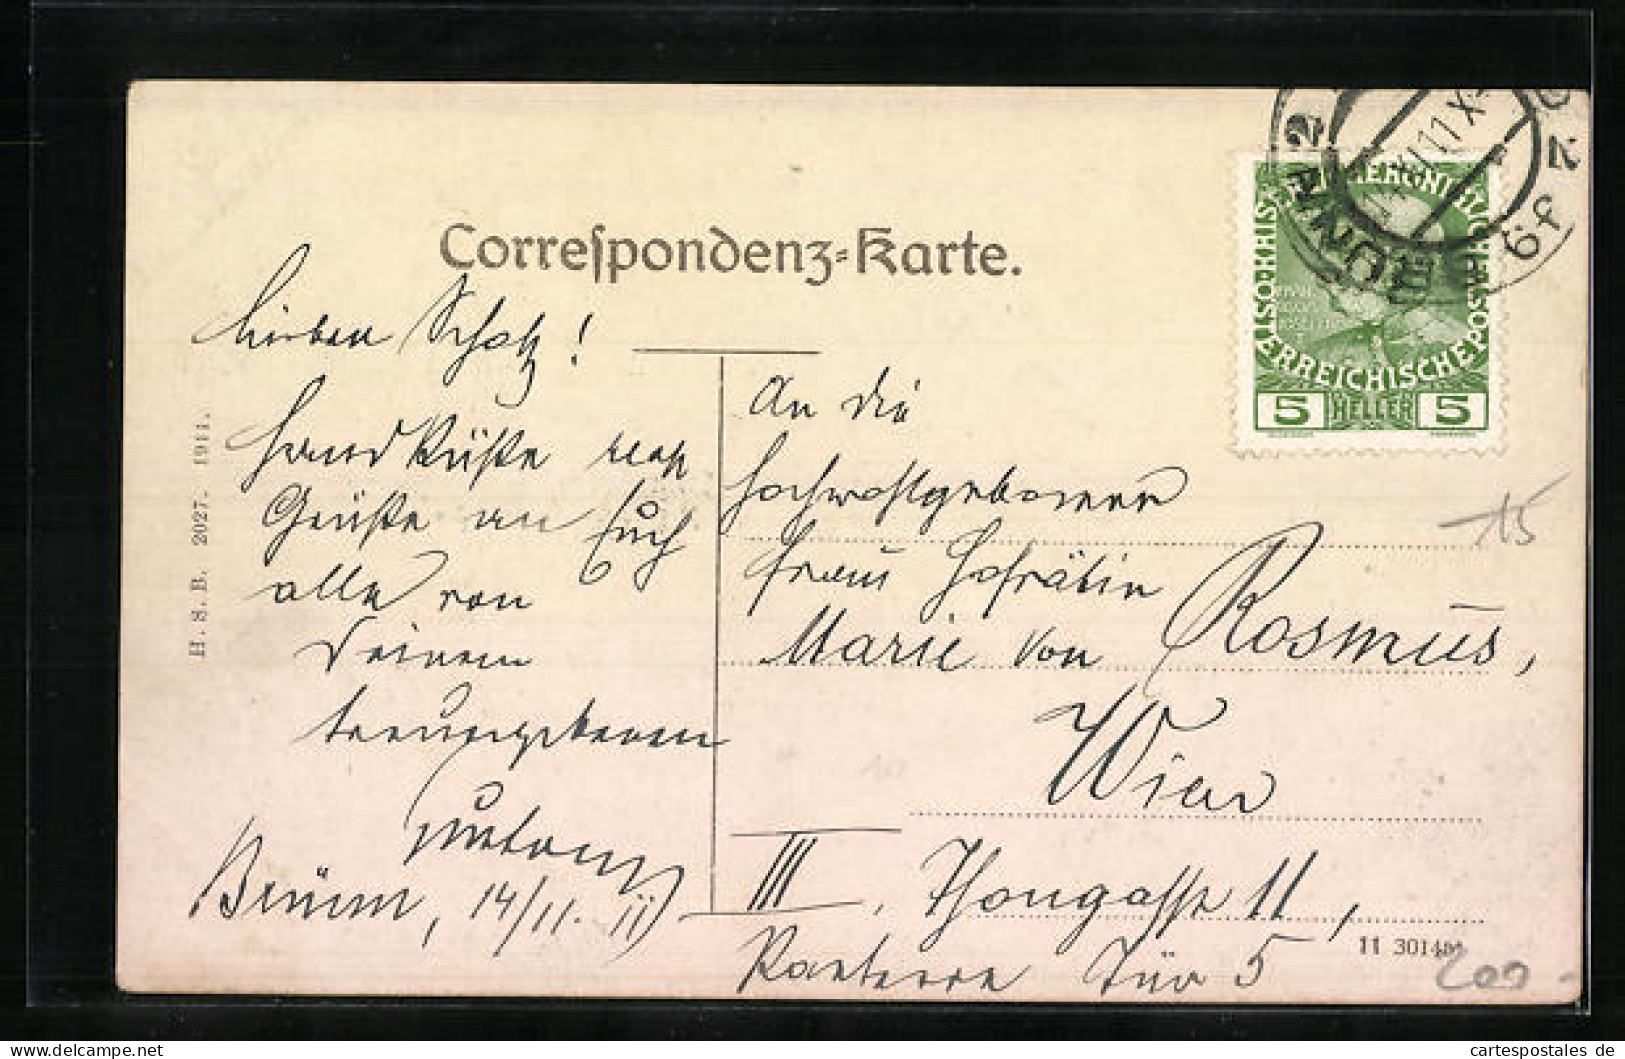 Correspondenz-Karte.
Lieber Schatz!
Handküße und
Grüße an Euch
alle von
Deinem
treuergebenen
Brünn, 14/11. 11
An die
Hochwohlgeborene
Frau Hofrätin
Marie von Rosmus,
Wien
III, Thongasse 11,
Parterre Tür 5
KAISERLICHE KÖNIGLICHE
ÖSTERREICHISCHE POST
5 HELLER 5
BRÜNN 2
15
H. S. B. 2027. 1911.
11 30140
200
delcampe.net
cartespostales de